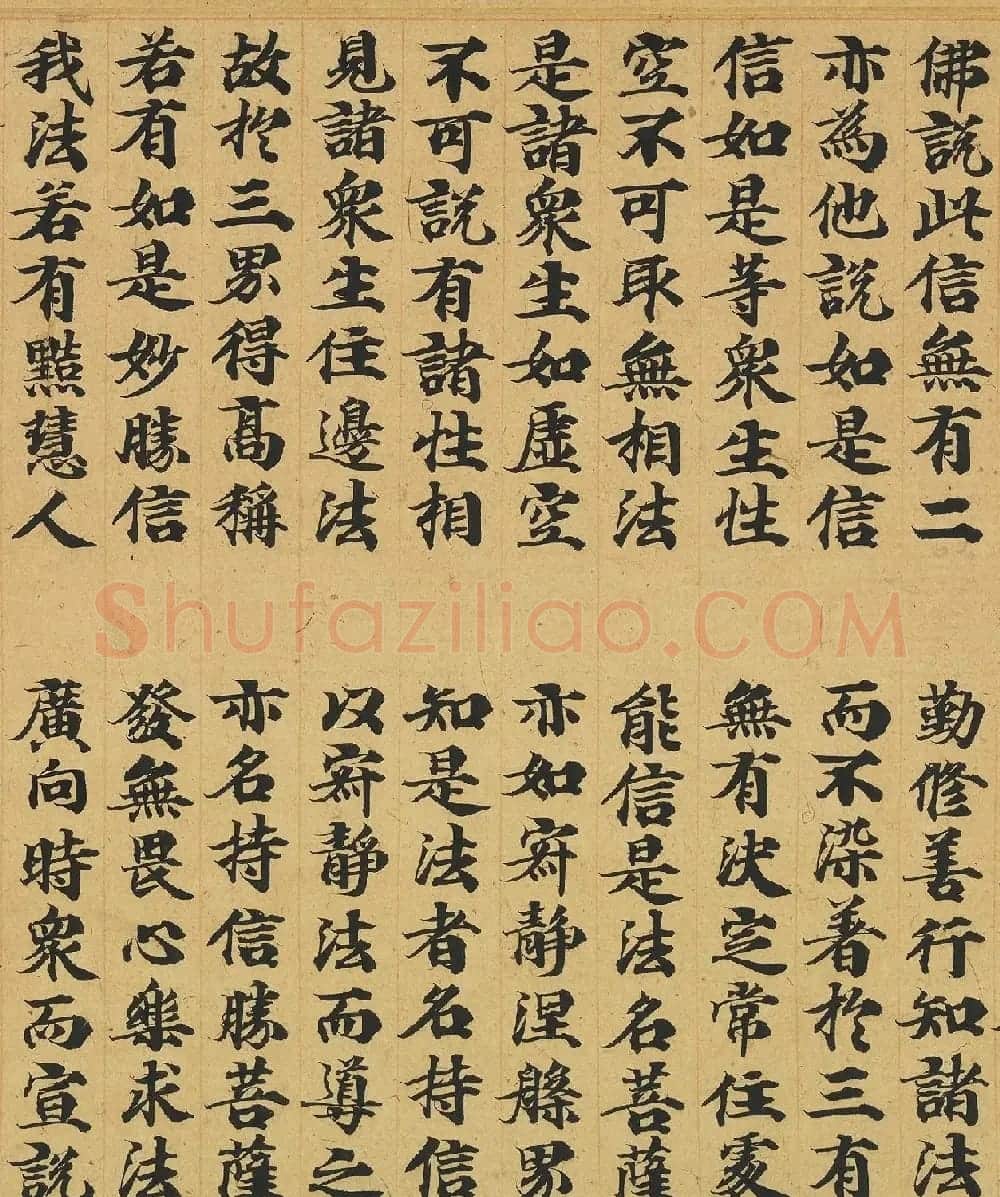 佛說此信無有二
勤修善行知諸法
亦為他說如是信
而不染著於三有
信如是等衆生性
無有決定常住處
空不可取無相法
能信是法名菩薩
是諸衆生如虛空
亦如寂靜涅槃界
不可說有諸性相
知是法者名持信
見諸衆生住邊法
以寂靜法而導之
故於三界得高稱
亦名持信勝菩薩
若有如是妙勝信
發無畏心樂求法
我法若有黠慧人
廣向時衆而宣說
Shufaziliao.COM